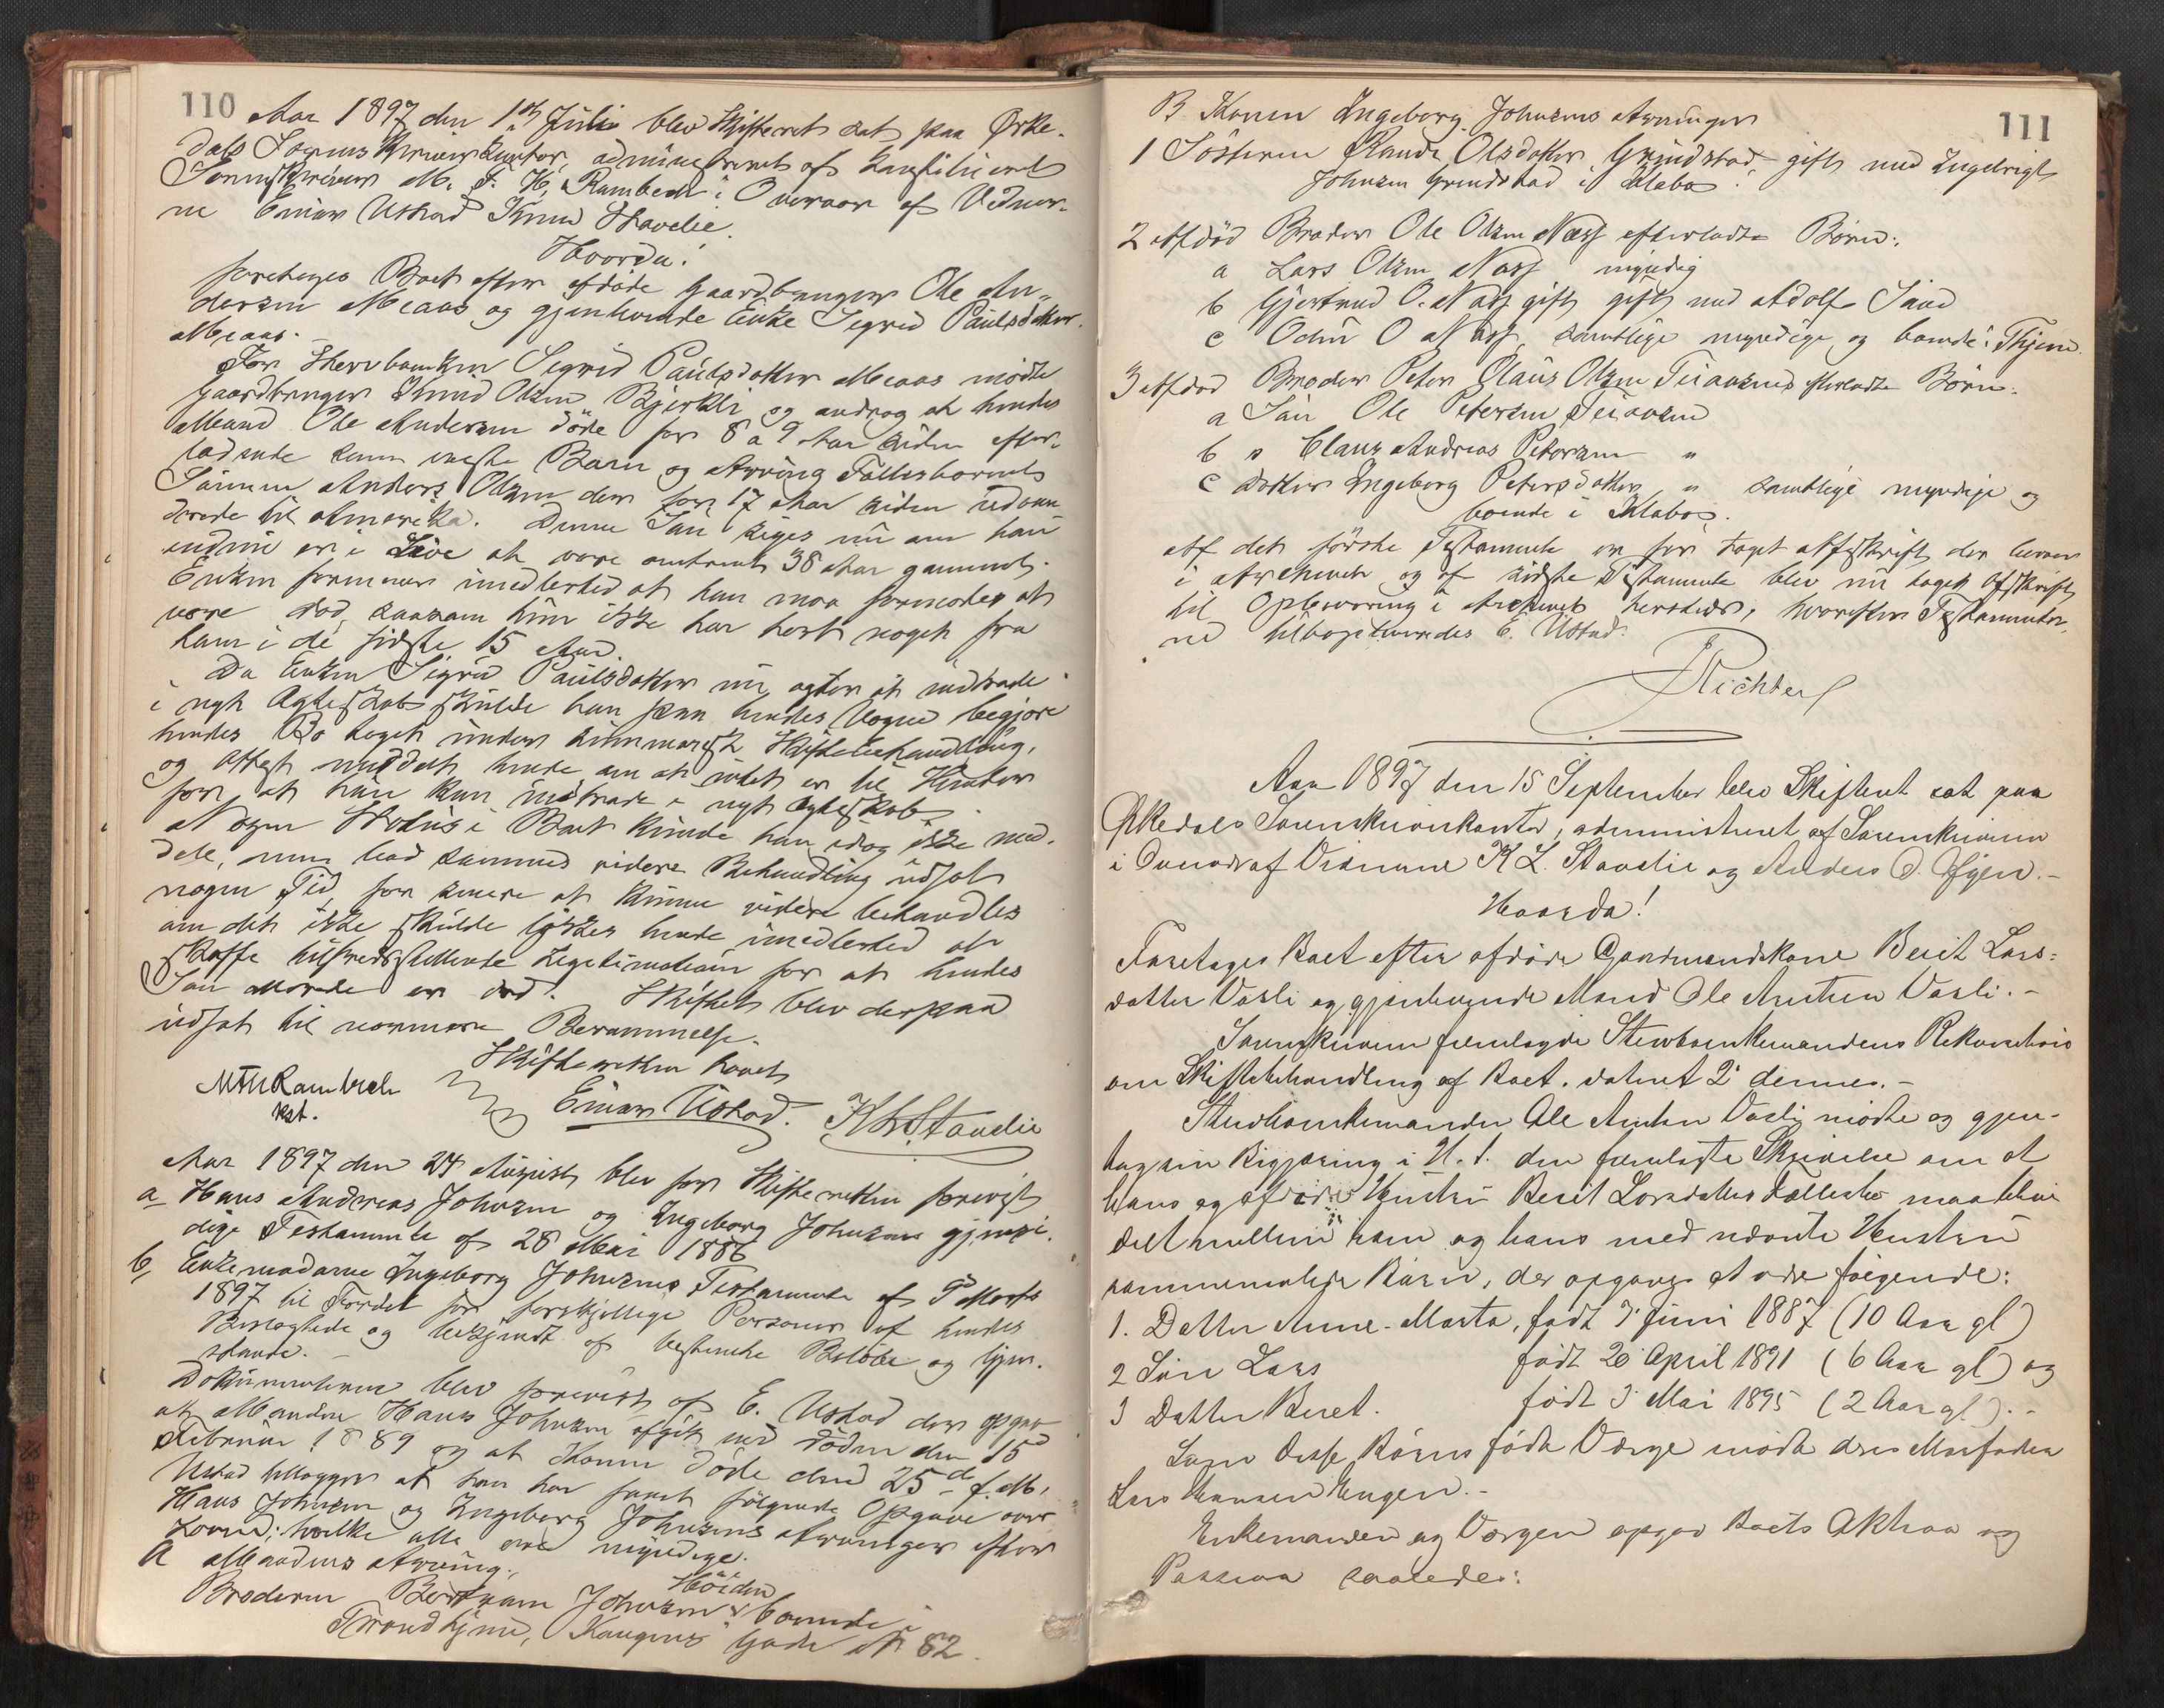 110
Aar 1897 den 1ste Juli blev Skifteret sat paa Ørke-
dals Sorenskriverkontor, administreret af konstitueret
Sorenskriver M. F. H. Rambech i Overvær af Vidner-
ne Einar Ustad Knud Stavlie.
Hvorda!
foretages Boet efter afdøde Gaardbruger Ole An-
dersen Meaas og gjenlevende Enke Sigrid Paulsdatter
Meaas.
For Stervboenken Sigrid Paulsdatter Meaas mødte
Gaardbruger Knud Olsen Bjerkli og androg at hendes
Mand Ole Andersen døde for 8 a 9 Aar siden efter-
ladende som eneste Barn og Arving Fællesbarnet
Sønnen Anders Olsen der for 17 Aar siden udvan-
drede til Amerika. Denne Søn siges nu om han
endnu er i Live at være omtrent 38 Aar gammel.
Enken formener imedlertid at han maa formodes at
være død, saasom hun ikke har hørt noget fra
ham i de sidste 15 Aar.
Da Enken Sigrid Paulsdatter nu agter at indtræde
i nyt Ægteskab skulde han paa hendes Vegne begjære
hendes Bo taget under summarisk Skiftebehandling,
og Attest meddelt hende om at intet er til Hinder
for at hun kan indtræde i nyt Ægteskab.
Nogen Status i Boet kunde han idag ikke med-
dele, men bad sammes videre Behandling udsat
nogen Tid, for senere at kunne videre behandles
om det ikke skulde lykkes hende imedlertid at
skaffe tilfredsstillende Legitimation for at hendes
Søn Anders er død. Skiftet blev derpaa
udsat til nærmere Berammelse.
Skifteretten hævet
MFHRambech
kst.
Einar Ustad. KLStavlie
Aar 1897 den 24 August blev for Skifteretten forevist
a Hans Andreas Johnsen og Ingeborg Johnsens gjensi-
dige Testamente af 28 Mai 1886
b, Enkemadame Ingeborg Johnsens Testamente af 9 Marts
1897 til Fordel for forskjellige Personer af hendes
Beslægtede og bekjendt af bestemte Beløbe og Gjen-
stande.
Dokumenterne blev forevist af E. Ustad der opgav
at Manden Hans Johnsen afgik ved Døden den 15d
Februar 1889 og at Konen døde den 25de f. M.
Ustad tillægger at han har faaet følgende Opgave over
Hans Johnsen og Ingeborg Johnsens Arvinger efter
Loven; hvilke alle ere myndige.
A Mandens Arving.
Broderen Bertram Johnsen Høiden boende i
Trondhjem, Kongens Gade N 82.
111
B Konen Ingeborg Johnsens Arvinger
1 Søsteren Randi Olsdatter Grindstad gift med Ingebrigt
Johnsen Grindstad i Klæbo.
2 Afdød Broder Ole Olsen Næss efterladte Børn:
a Lars Olsen Næss myndig
b Gjertrud O. Næss gift gift med Adolf Sand
c Odin O Næss, samtlige myndige og boende i Thjem
3 Afdød Broder Peter Olaus Olsen efterladte Børn:
a Søn Ole Petersen
b " Claus Andreas Petersen "
c Datter Ingeborg Petersdatter " samtlige myndige og
boende i Klæbo.
Af det første Testamente er før taget Afskrift der beror
i Archivet og af sidste Testamente blev nu taget Afskrift
til Opbevaring i Archivet hersteds, hvorefter Testamenter-
ne tilbageleveredes E. Ustad.
Richter
Aar 1897 den 15 September blev Skifteret sat paa
Ørkedals Sorenskriverkontor, administreret af Sorenskriveren
i Overvær af Vidnerne K L. Stavlie og Anders O. Øyen.-
Hvorda!
Foretages Boet efter afdøde Gaardmandskone Berit Lars-
datter Vasli og gjenlevende Mand Ole Antsen Vasli.-
Sorenskriveren fremlagde Stervboenkemandens Rekvisition
om Skiftebehandling af Boet. dateret 2 dennes.-
Stervboenkemanden Ole Antsen Vasli mødte og gjen-
tog sin Begjæring i H. t. den fremlagte Skrivelse om at
hans og afdøde Hustru Berit Larsdatters Fællesbo maa blive
delt mellem ham og hans med nævnte Hustru
sammenavlede Børn, der opgaves at være følgende:
1. Datter Anne-Marta, født 3 Juni 1887 (10 Aar gl)
2 Søn Lars født 20 April 1891 (6 Aar gl) og
3 Datter Beret. født 3 Mai 1895 (2 Aar gl).-
Som disse Børns fødte Værge mødte deres Morfader
Lars Hansen Engen.-
Enkemanden og Værgen opgav Boets Aktiva og
Passiva saaledes: